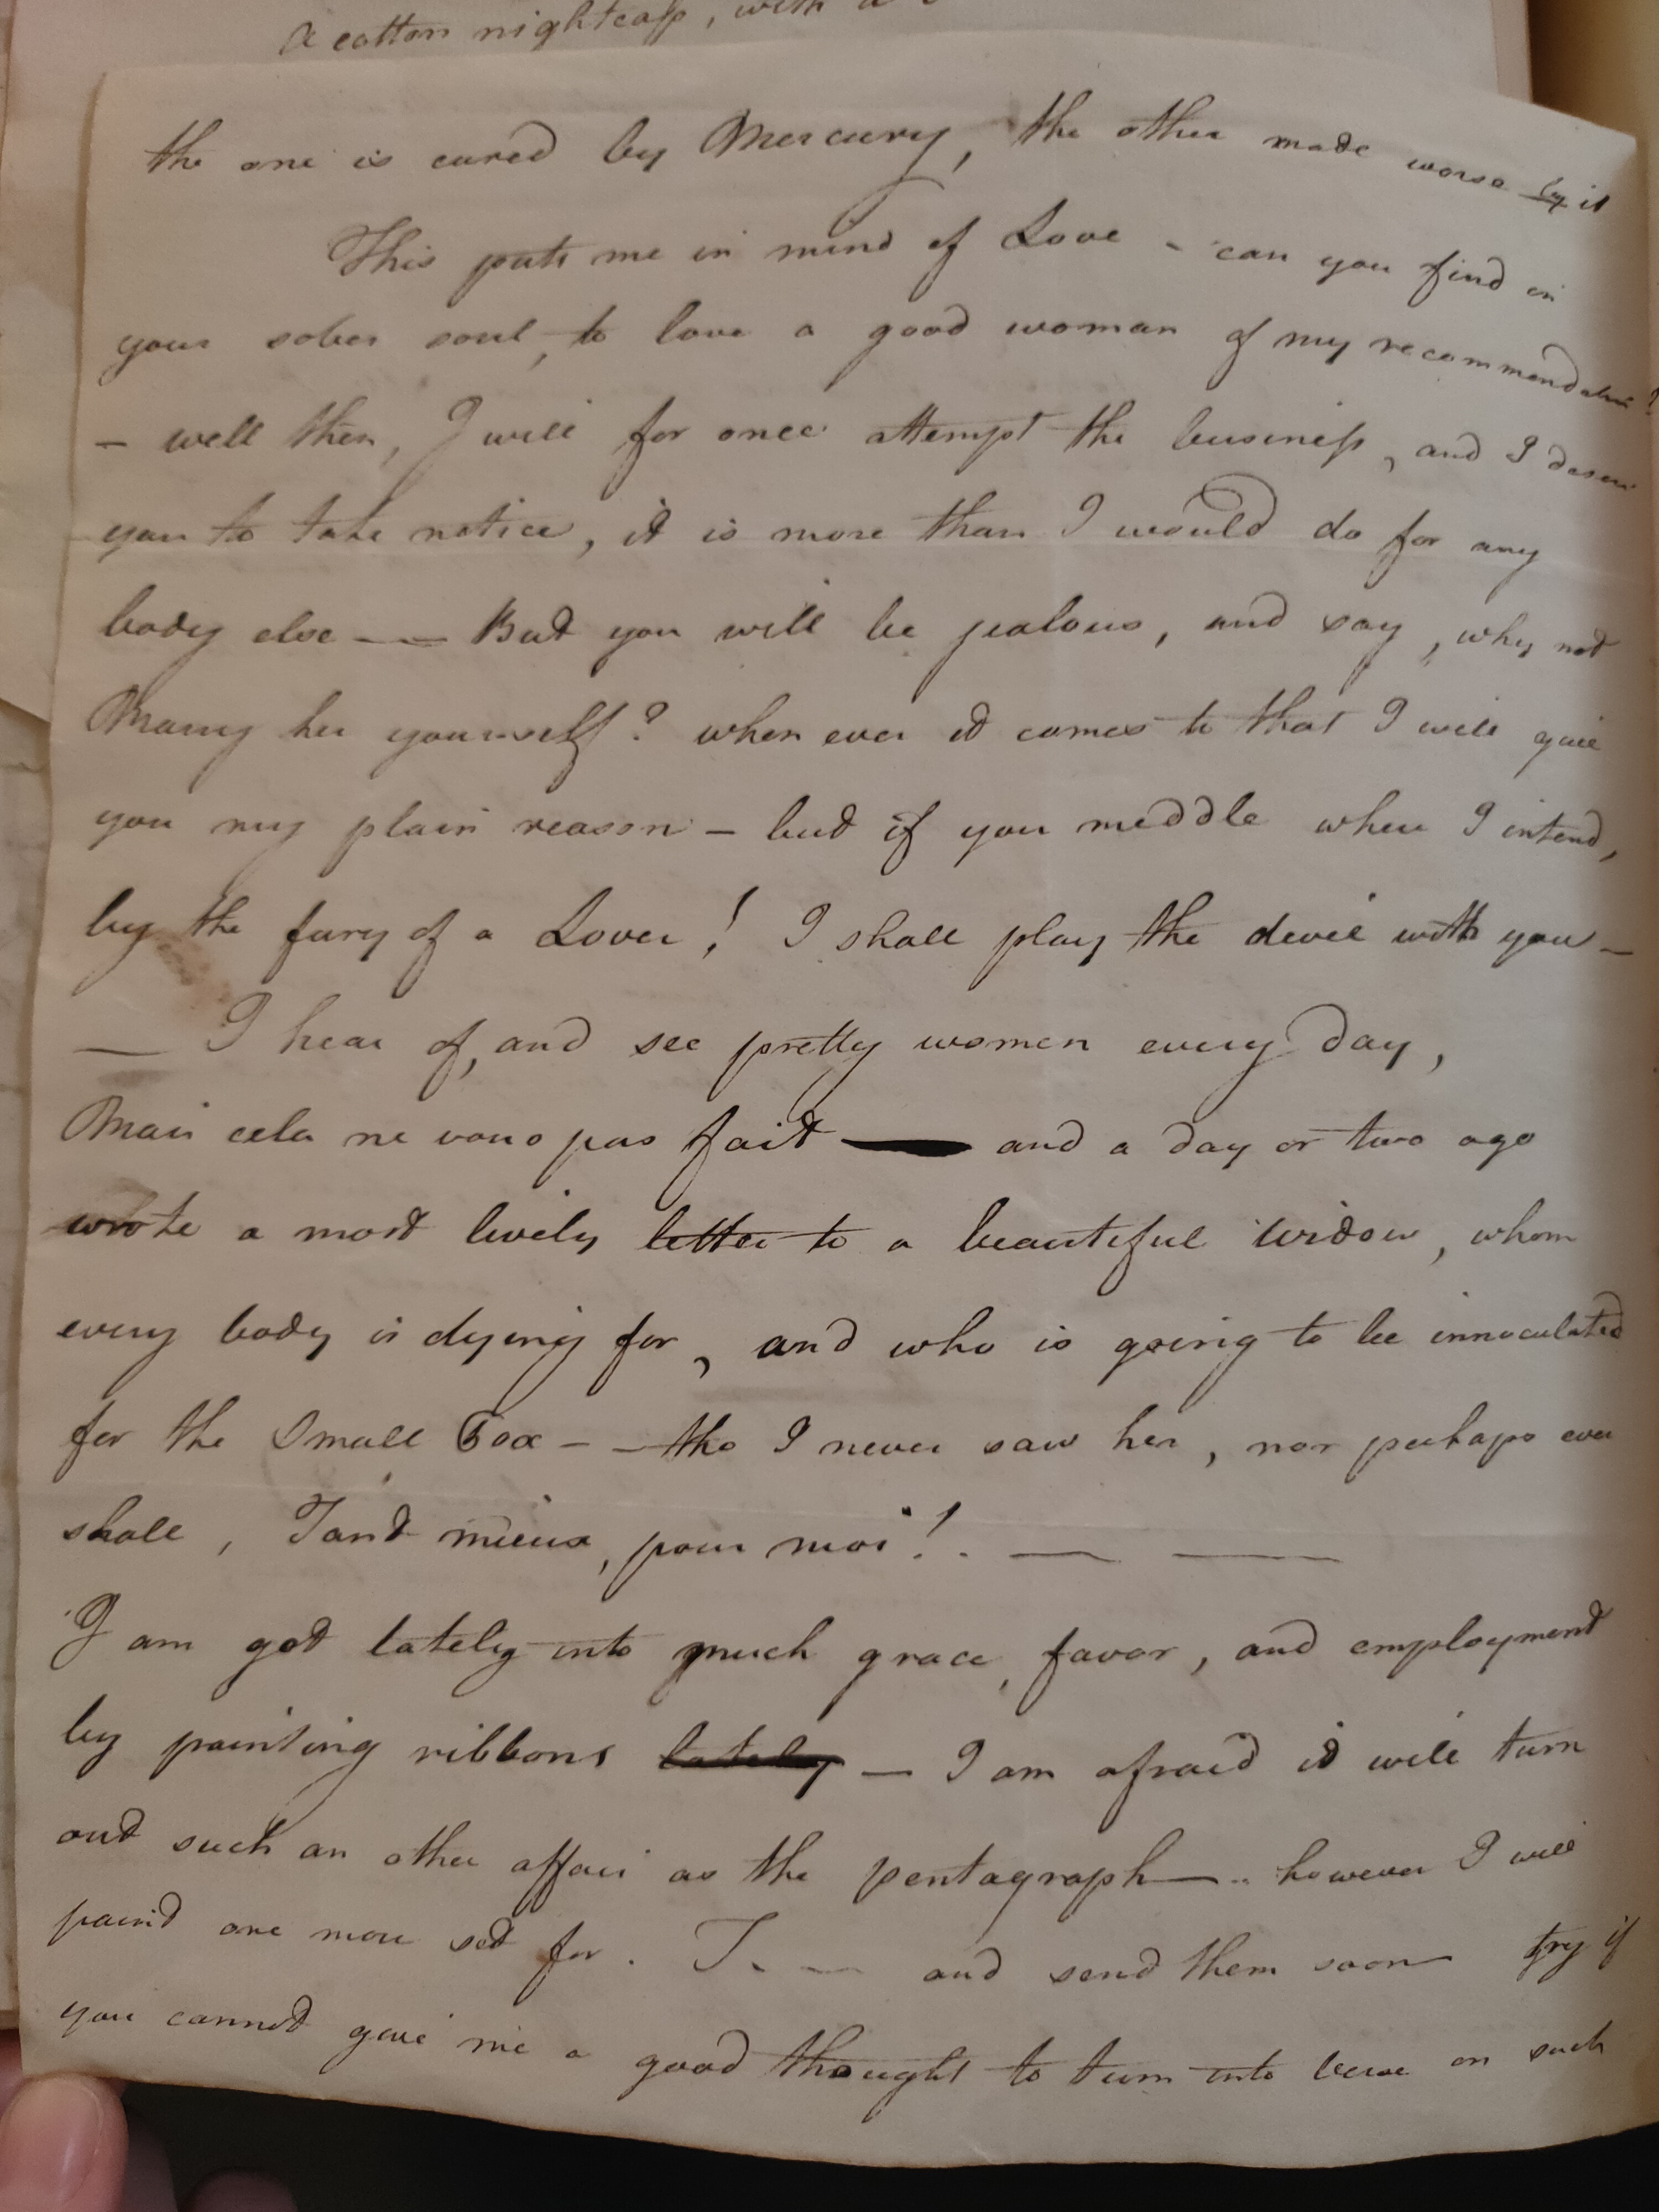 A cotton nightcap, with a
the one is cured by Mercury, the other made worse by it
This puts me in mind of Love - can you find in
your sober soul, to love a good woman of my recommendation?
- well then, I will for once attempt the business, and I desire
you to take notice, it is more than I would do for any
body else — — But you will be jealous, and say, why not
Marry her yourself? when ever it comes to that I will give
you my plain reason - but if you meddle where I intend,
by the fury of a Lover! I shall play the devil with you —
— I hear of, and see pretty women every day,
Mais cela ne vous pas fait — and a day or two ago
wrote a most lively letter to a beautiful widow, whom
every body is dying for, and who is going to be innoculated
for the Small Pox - - tho I never saw her, nor perhaps ever
shall, Tant mieux, pour moi! . — —
I am got lately into much grace, favor, and employment
by painting ribbons lately — I am afraid it will turn
out such an other affair as the pentagraph — .. however I will
paint one more set for . T. — — and send them soon — try if
you cannot give me a good thought to turn into verse on such